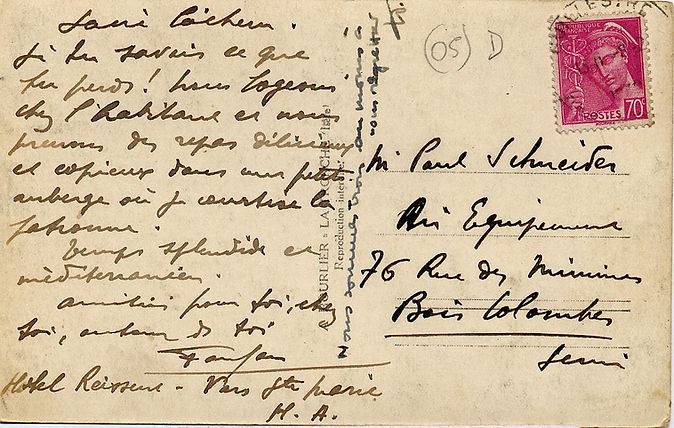 Sacré lâcheur.
Si tu savais ce que
tu perds! Nous logeons
chez l'habitant et nous
prenons des repas délicieux
et copieux dans une petite
auberge où je courtise la
patronne.
Temps splendide et
méditerranéen.
Amitiés pour toi, chez
toi, autour de toi
Fanfan
Hotel Reisseur - Vars Ste Marie
H. A.
Nous sommes trois au moins à
vous regretter
Reproduction interdite
(05) D
POSTES 70c
M Paul Schneider
Air Equipement
76 Rue des Minimes
Bois Colombes
Seine